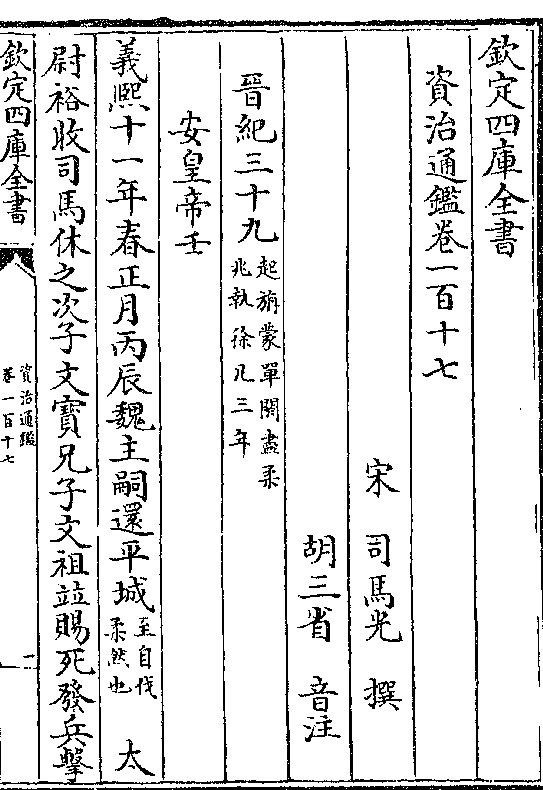 欽定四庫全書
資治通鑑卷一百十七
宋 司馬光 撰
胡三省 音注
晉紀三十九起旃蒙單閼盡柔
兆執徐凡三年
安皇帝壬
義熙十一年春正月丙辰魏主嗣還平城至自伐
柔然也 太
尉裕收司馬休之次子文寶兄子文祖竝賜死發兵擊
欽定四庫全書
資治通鑑
卷一百十七
一